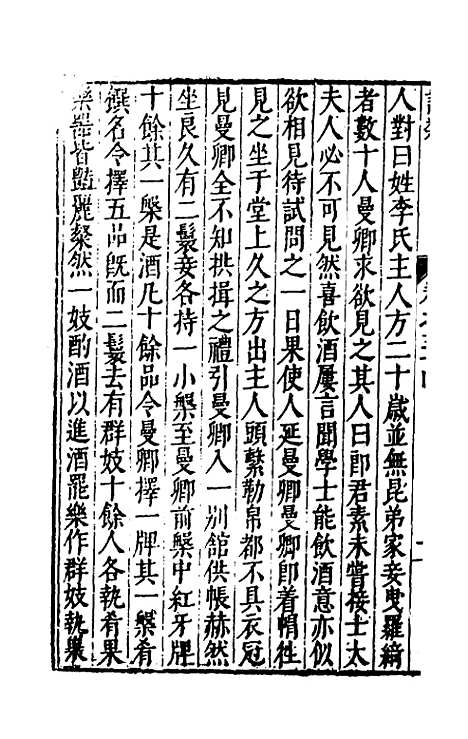 人對曰姓李氏主人方二十歲並無昆弟家妾曳羅綺
者數十人曼卿求欲見之其人曰郎君素未嘗接士大
夫人必不可見然喜飲酒屢言聞學士能飲酒意亦似
欲相見待試問之一日果使人延曼卿曼卿即着帽往
見之坐于堂上久之方出主人頭繫勒帛都不具衣冠
見曼卿全不知拱揖之禮引曼卿入一別館供帳赫然
坐良久有二鬟妾各持一小槃至曼卿前槃中紅牙牌
十餘其一槃是酒凡十餘品令曼卿擇一牌其一槃肴
饌名令擇五品既而二鬟去有群妓十餘人各執肴果
樂器皆豔麗粲然一妓酌酒以進酒罷樂作群妓執菓